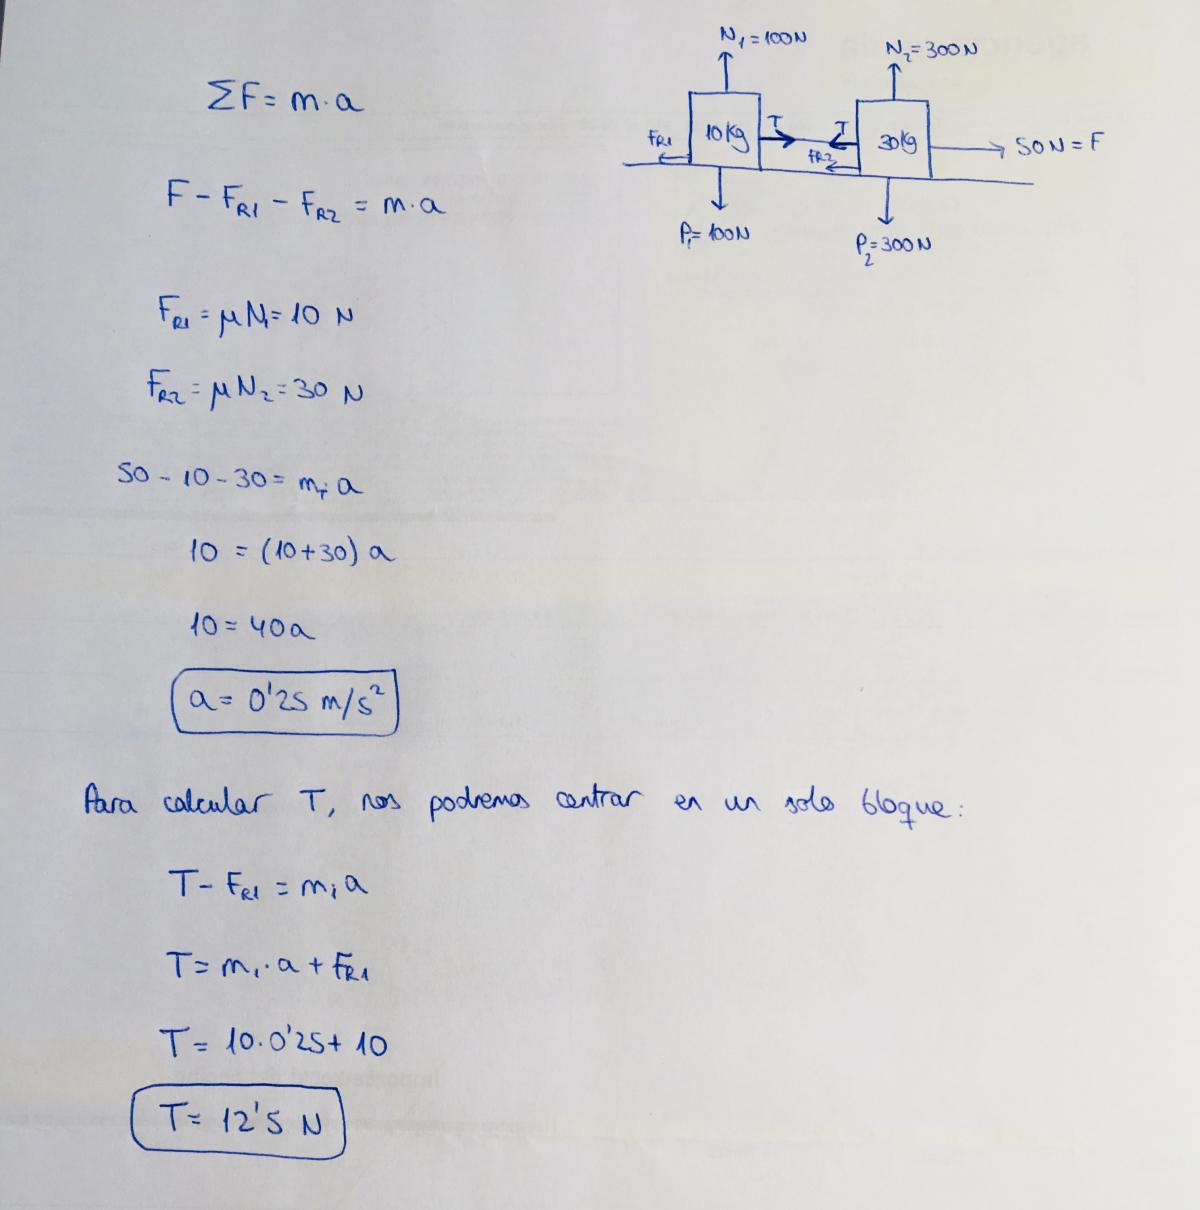 ΣF = m·a
N₁=100N
N₂=300N
10Kg
T
T
30Kg
50N=F
FR1
FR2
P₁=100N
P₂=300N
F - FR1 - FR2 = m·a
FR1 = μN₁= 10 N
FR2 = μN₂ = 30 N
50 - 10 - 30 = mT·a
10 = (10+30) a
10 = 40a
a = 0'25 m/s²
Para calcular T, nos podremos centrar en un solo bloque:
T - FR1 = m₁a
T = m₁·a + FR1
T = 10·0'25 + 10
T = 12'5 N